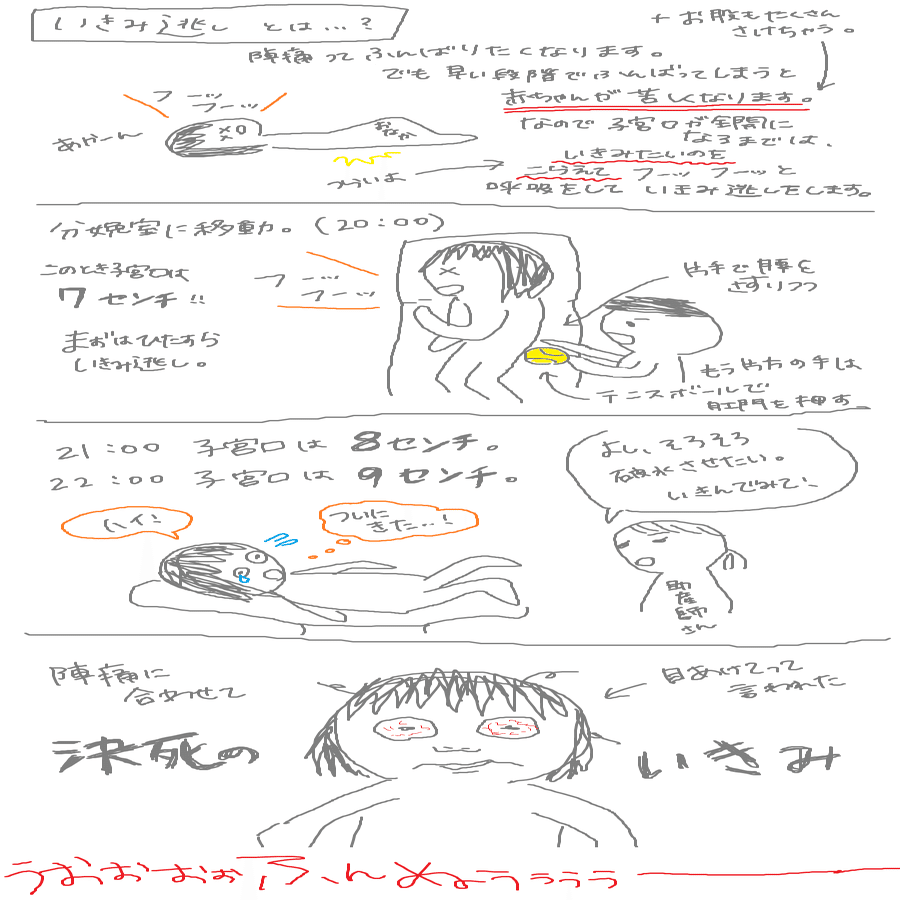 いきみ逃し とは…?
陣痛って ふんばりたくなります。
でも 早い段階で ふんばってしまうと
赤ちゃんが 苦しくなります。
+ お股もたくさん
さけちゃう。
なので 子宮口が全開に
なるまでは、
いきみたいのを
こらえて フーッ フーッと
呼吸をして いきみ逃しをします。
フーッ
フーッ
あかーん
おなか
つらいよ
分娩室に移動。(20:00)
このとき子宮口は
7センチ!!
まおはひたすら
いきみ逃し。
フーッ
フーッ
片手で腰を
さすりつつ
もう片方の手は
テニスボールで
肛門を押す
21:00 子宮口は 8センチ。
22:00 子宮口は 9センチ。
よし、そろそろ
破水させたい。
いきんでみて!
ハイ!
ついに
きた…!
助産師さん
陣痛に
合わせて
目あけてって
言われた
決死の いきみ
うおおおぉふんぬょうぅぅぅー